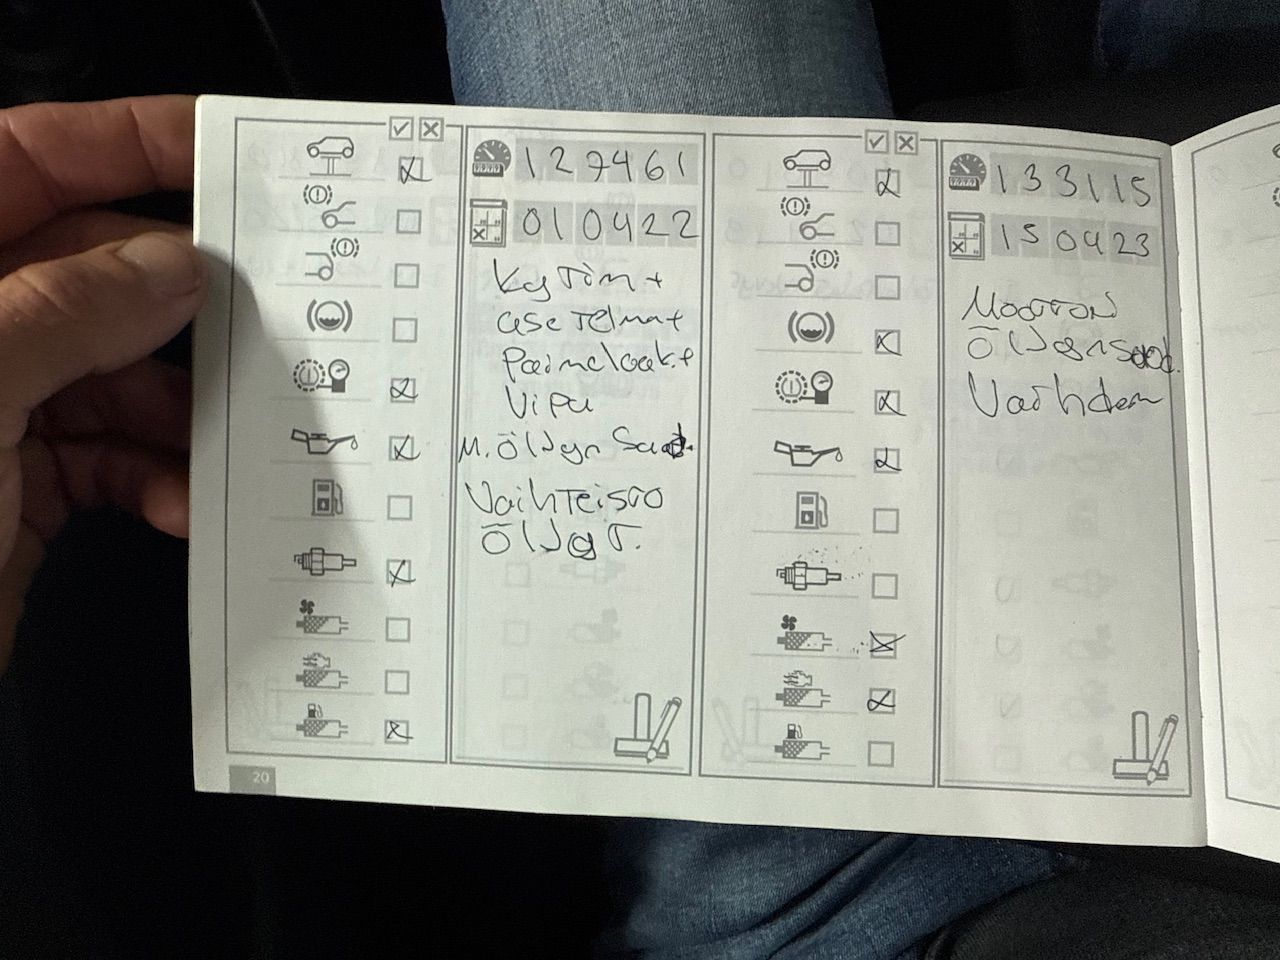 127461
010422
Kytkin+
asetelma+
painelaak.+
Vipu
M. öljyn Suod.
Vaihteisto
öljyt.
20
133115
150423
Moottori
öljynsuod.
Vaihdem